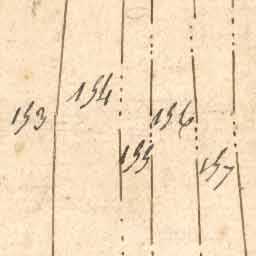 153
154
155
156
157